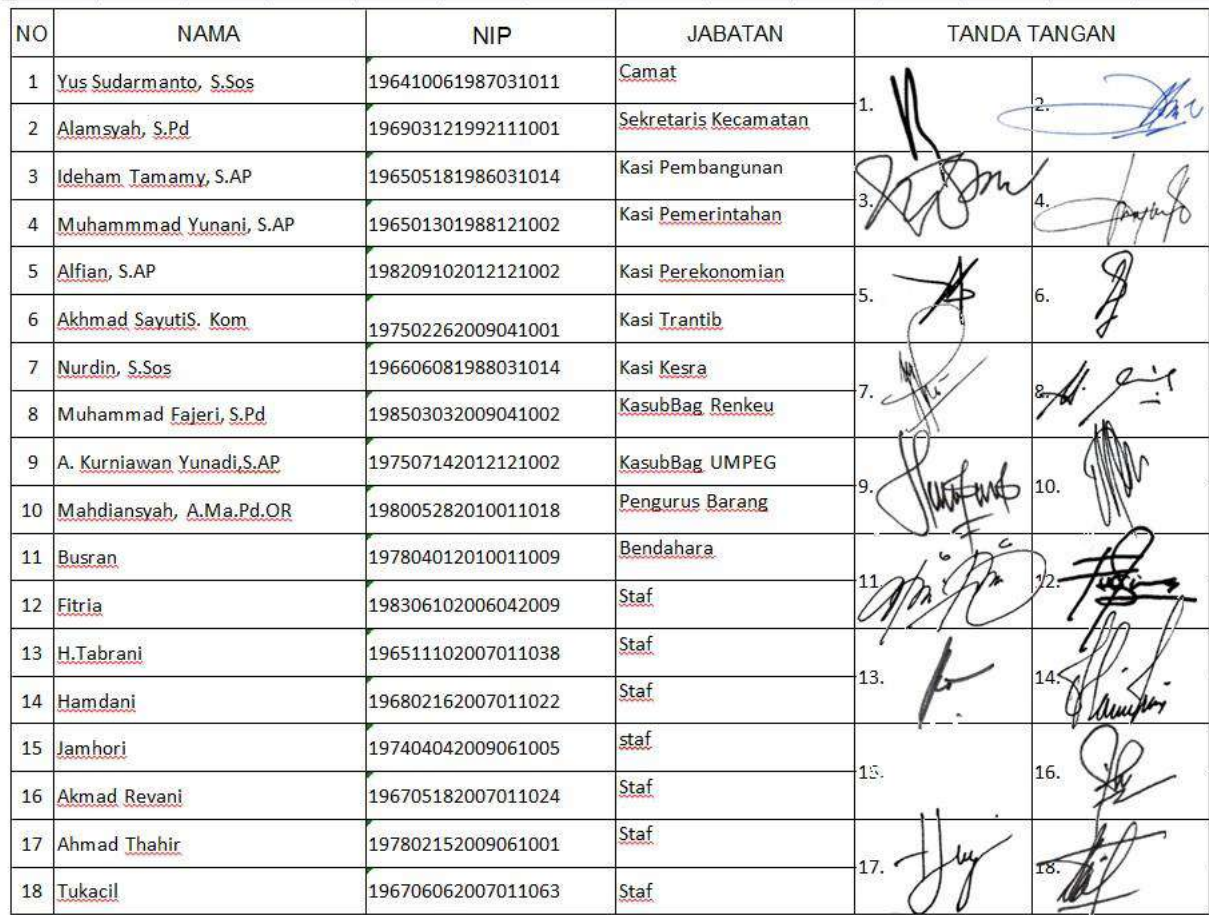 NO NAMA NIP JABATAN TANDA TANGAN
1 Yus Sudarmanto, S.Sos 196410061987031011 Camat 1. 2.
2 Alamsyah, S.Pd 196903121992111001 Sekretaris Kecamatan
3 Ideham Tamamy, S.AP 196505181986031014 Kasi Pembangunan 3. 4.
4 Muhammmad Yunani, S.AP 196501301988121002 Kasi Pemerintahan
5 Alfian, S.AP 198209102012121002 Kasi Perekonomian 5. 6.
6 Akhmad SayutiS. Kom 197502262009041001 Kasi Trantib
7 Nurdin, S.Sos 196606081988031014 Kasi Kesra 7. 8.
8 Muhammad Fajeri, S.Pd 198503032009041002 KasubBag Renkeu
9 A. Kurniawan Yunadi,S.AP 197507142012121002 KasubBag UMPEG 9. 10.
10 Mahdiansyah, A.Ma.Pd.OR 198005282010011018 Pengurus Barang
11 Busran 197804012010011009 Bendahara 11. 12.
12 Fitria 198306102006042009 Staf
13 H.Tabrani 196511102007011038 Staf 13. 14.
14 Hamdani 196802162007011022 Staf
15 Jamhori 197404042009061005 staf 15. 16.
16 Akmad Revani 196705182007011024 Staf
17 Ahmad Thahir 197802152009061001 Staf 17. 18.
18 Tukacil 196706062007011063 Staf